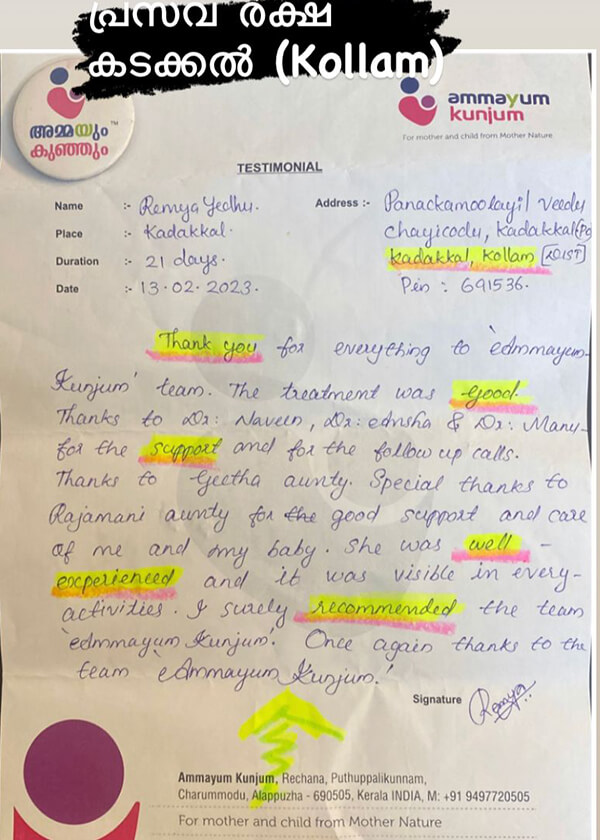 പ്രസവ രക്ഷ
കടക്കൽ (Kollam)
അമ്മയും™
കുഞ്ഞും
ammayum
kunjum
For mother and child from Mother Nature
TESTIMONIAL
Name :- Remya Yedhu.
Place :- Kadakkal.
Duration :- 21 days.
Date :- 13.02.2023.
Address :- Panackamoolayil Veedu
chayicodu, Kadakkal(PO)
Kadakkal, Kollam [DIST]
Pin : 691536.
Thank you for everything to 'Ammayum
Kunjum' team. The treatment was good.
Thanks to Dr: Naveen, Dr: Ansha & Dr: Manu
for the support and for the follow up calls.
Thanks to Geetha aunty. Special thanks to
Rajamani aunty for the good support and care
of me and my baby. She was well -
experienced and it was visible in every-
activities. I surely recommended the team
'Ammayum Kunjum'. Once again thanks to the
team 'Ammayum Kunjum.'
Signature Remya
Ammayum Kunjum, Rechana, Puthuppalikunnam,
Charummodu, Alappuzha - 690505, Kerala INDIA, M: +91 9497720505
For mother and child from Mother Nature